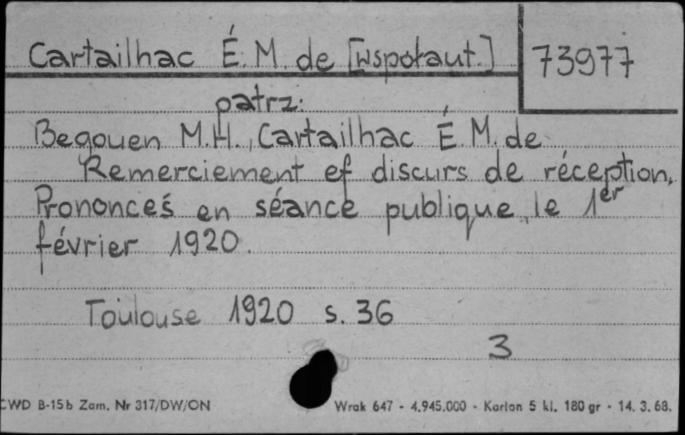 Cartailhac É. M. de [współaut.] 73977
patrz:
Begouen M.H., Cartailhac É M. de
Remerciement ef discurs de réception.
Prononceś en séance publique, le 1er
février 1920.
Toulouse 1920 s. 36
3
CWD B-15b Zam. Nr 317/DW/ON Wrak 647 - 4.945.000 - Karton 5 kl. 180 gr - 14. 3. 68.